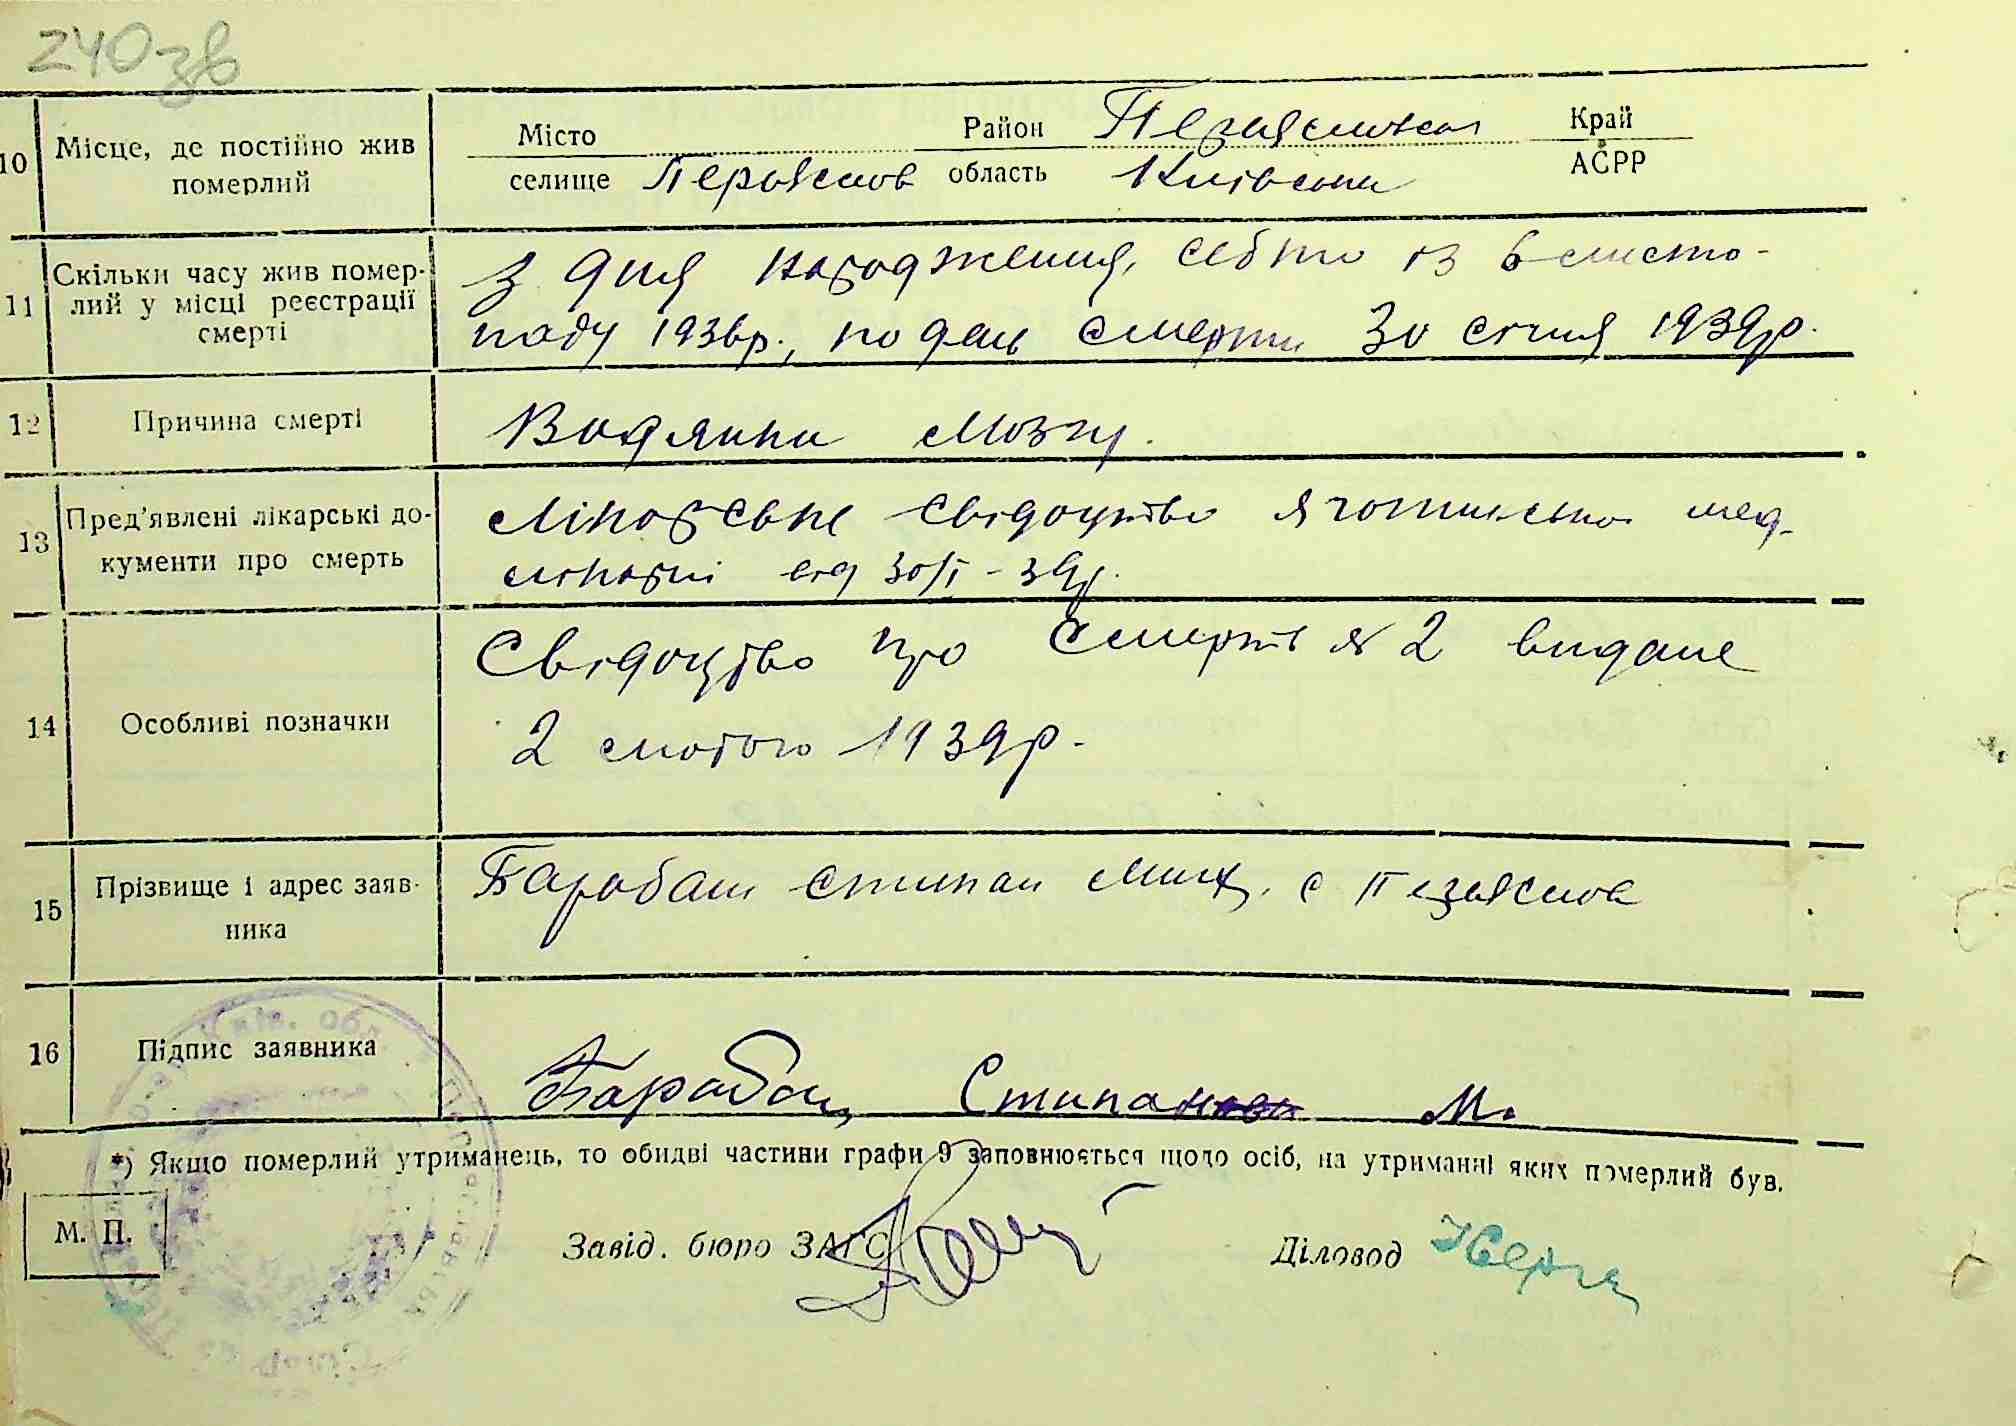 240зв
10 Місце, де постійно жив померлий
Місто Район Переяславськ Край
селище Переяслов область Київська АСРР
11 Скільки часу жив помер-
лий у місці реєстрації
смерті
З дня народження, себто із 6 листо-
паду 1936р., по день смерти 30 січня 1939р.
12 Причина смерті
Водянка мозгу.
13 Пред’явлені лікарські до-
кументи про смерть
Лікарське свідоцтво Яготинської мед-
лікарні від 30/I - 39р.
14 Особливі позначки
Свідоцтво про смерть № 2 видане
2 лютого 1939р.
15 Прізвище і адрес заяв-
ника
Барабаш Степан Мих. с Переяслов
16 Підпис заявника
Барабаш Стипан М.
*) Якщо померлий утриманець, то обидві частини графи 9 заповнюється щодо осіб, на утриманні яких померлий був.
М. П.
Завід. бюро ЗАГС
Діловод